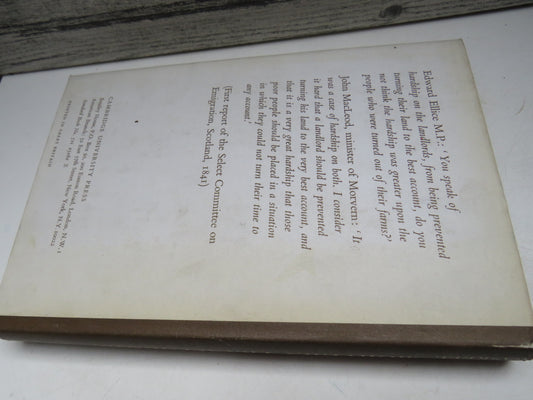 Edward Ellice M.P.: 'You speak of
hardship on the landlords, from being prevented
turning their land to the best account, do you
not think the hardship was greater upon the
people who were turned out of their farms?'
John MacLeod, minister of Morvern: 'It
was a case of hardship on both. I consider
it hard that a landlord should be prevented
turning his land to the very best account, and
that it is a very great hardship that those
poor people should be placed in a situation
in which they could not turn their time to
any account.'
(First report of the Select Committee on
Emigration, Scotland, 1841)
CAMBRIDGE UNIVERSITY PRESS
Bentley House, P.O. Box 92, 200 Euston Road, London, N.W.1
American Branch: 32 East 57th Street, New York, N.Y. 10022
PRINTED IN GREAT BRITAIN